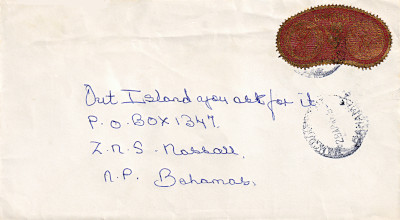 Out Island you ask for it
P.O. BOX 1347.
Z.N.S. Nassall,
N.P. Bahamas.